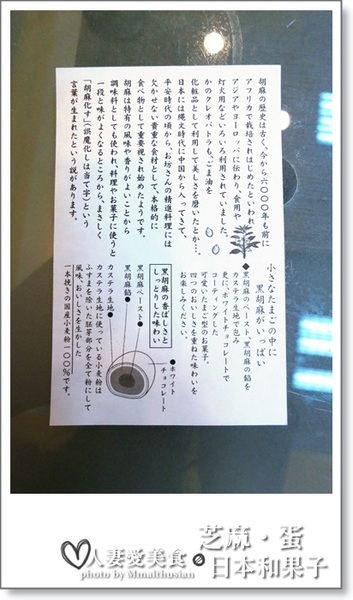 胡麻の歴史は古く、今から六〇〇〇年も前に
アフリカで栽培されはじめたといわれ、
アジアやヨーロッパに伝わり、食用や
灯火用などいろいろ利用されていました。
かのクレオパトラも、ごま油を
化粧品として利用して美しさを磨いたとか…。
日本には縄文時代に中国から入ってきて、
平安時代の頃から、お坊さんの精進料理には
欠かせない貴重な食材として、本格的に
食べ物として重要視され始めたようです。
胡麻は特有の風味や香りがよいことから
調味料としても使われ、料理やお菓子に使うと
一段と味がよくなるところから、まさしく
「胡麻化す」(誤魔化しは当て字)という
言葉が生まれたという説があります。
小さなたまごの中に
黒胡麻がいっぱい
◆黒胡麻のペースト、黒胡麻の餡を
カステラ生地で包み
更に、ホワイトチョコレートで
コーティングした
可愛いたまご型のお菓子。
四つのおいしさを重ねた味わいを
お楽しみください。
黒胡麻の香ばしさと
しっとりした味わい
●ホワイト
チョコレート
黒胡麻ペースト●
黒胡麻餡●
カステラ生地●
カステラ生地に使っている小麦粉は
ふすまを除いた胚芽部分を全て粉にして
風味、おいしさを生かした
一本挽きの国産小麦粉一〇〇％です。
人妻愛美食
photo by Mmalthusian
芝麻・蛋
日本和果子